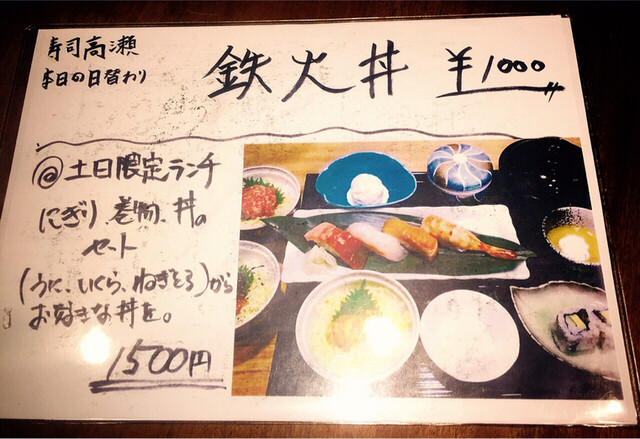 寿司高瀬
本日の日替わり
鉄火丼 ¥1000
@土日限定ランチ
にぎり 巻物、丼の
セット
(うに、いくら、ねぎとろ)から
お好きな丼を。
1500円